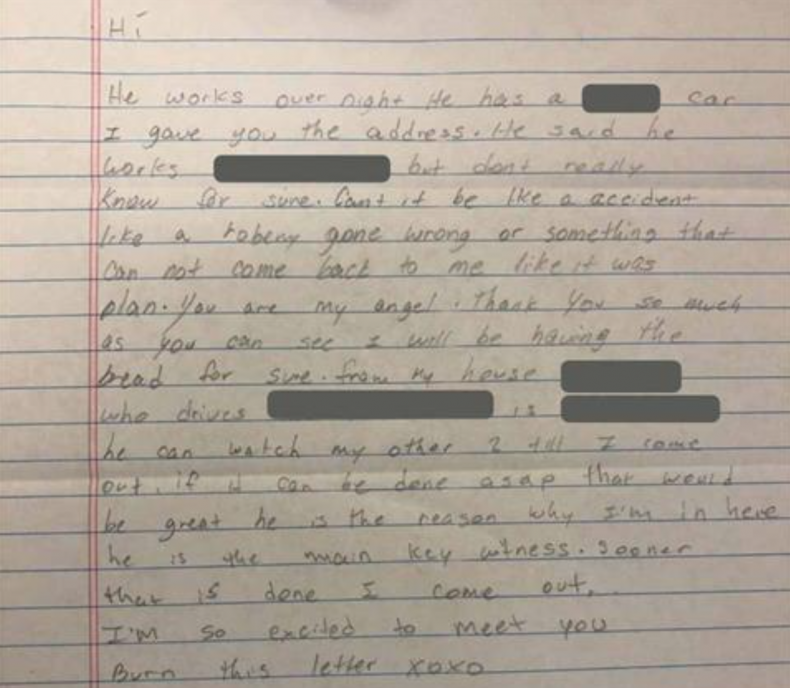 Hi
He works over night He has a car
I gave you the address. He said he
works but dont really
know for sure. Cant it be like a accident
like a robery gone wrong or something that
can not come back to me like it was
plan. You are my angel. Thank You so much
as you can see I will be having the
bead for sure. from my house
who drives is
he can watch my other 2 till I come
out. if it can be done asap that would
be great he is the reason why I'm in here
he is the main key witness. Sooner
that is done I come out.
I'm so excited to meet you
Burn this letter xoxo